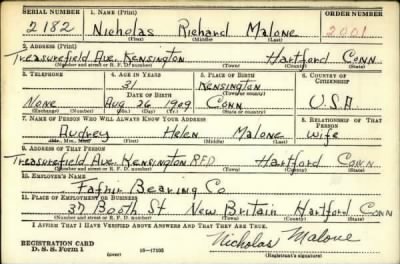 SERIAL NUMBER 1. NAME (Print) ORDER NUMBER
2182 Nicholas Richard Malone 2001
(First) (Middle) (Last)
2. ADDRESS (Print)
Treasurefield Ave. Kensington Hartford Conn
(Number and street or R. F. D. number) (Town) (County) (State)
3. TELEPHONE 4. AGE IN YEARS 5. PLACE OF BIRTH 6. COUNTRY OF CITIZENSHIP
31 Kensington
DATE OF BIRTH (Town or county)
None Aug 26 1909 Conn U.S.A
(Exchange) (Number) (Mo.) (Day) (Yr.) (State or country)
7. NAME OF PERSON WHO WILL ALWAYS KNOW YOUR ADDRESS 8. RELATIONSHIP OF THAT PERSON
Audrey Helen Malone Wife
(Mr., Mrs., Miss) (First) (Middle) (Last)
9. ADDRESS OF THAT PERSON
Treasurefield Ave. Kensington RFD Hartford Conn.
(Number and street or R. F. D. number) (Town) (County) (State)
10. EMPLOYER'S NAME
Fafnir Bearing Co
11. PLACE OF EMPLOYMENT OR BUSINESS
37 Booth St New Britain Hartford Conn
(Number and street or R. F. D. number) (Town) (County) (State)
I AFFIRM THAT I HAVE VERIFIED ABOVE ANSWERS AND THAT THEY ARE TRUE.
REGISTRATION CARD Nicholas Malone
D. S. S. Form 1 (over) 16—17105 (Registrant's signature)